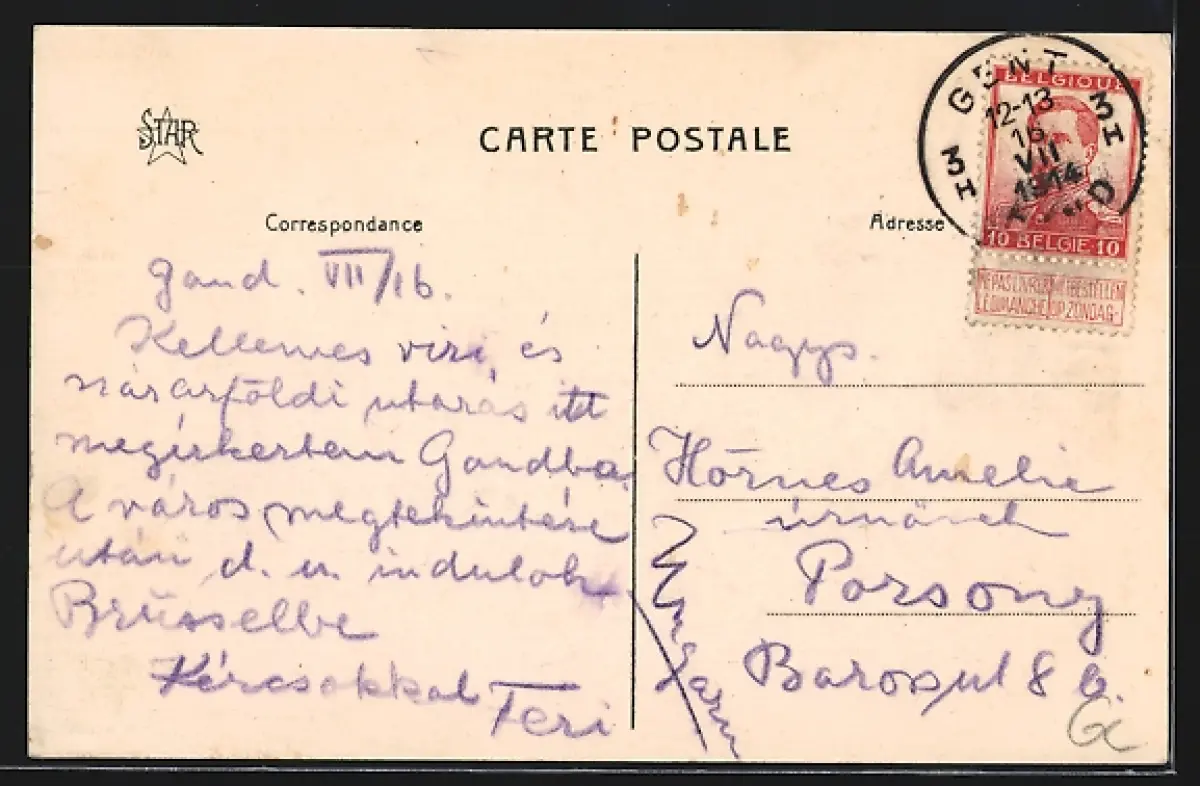 STAR
CARTE POSTALE
Correspondance
Adresse
GENT
3H
12-13
16
VII
1914
3H
BELGIQUE
10 BELGIE 10
NE PAS LIVRER NIET BESTELLEN
LE DIMANCHE OP ZONDAG
Gand. VII/16.
Kellemes vizi, és
szárazföldi utazás itt
megérkeztem Gandba.
A város megtekintése
után d. u. indulok
Brüsselbe
Kézcsókkal
Teri
Nagys.
Hörnes Amelie
úrnőnek
Pozsony
Baross ut 8 a.
Ungarn